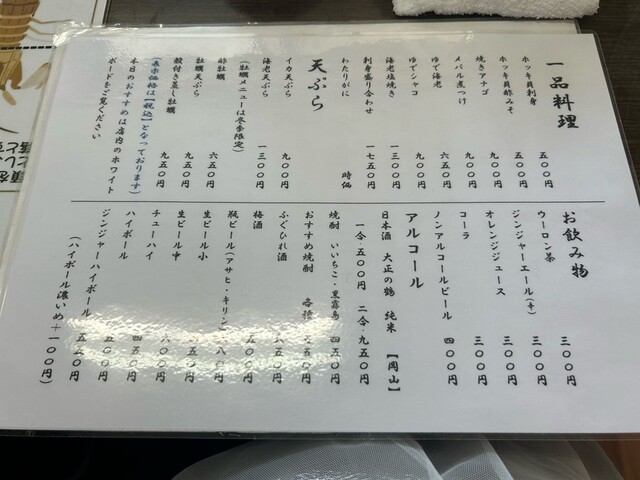 一品料理
ホッキ貝刺身 五〇〇円
ホッキ貝酢みそ 五〇〇円
焼きアナゴ 九〇〇円
メバル煮つけ 九〇〇円
ゆで海老 六五〇円
ゆでシャコ 九〇〇円
海老塩焼き 一三〇〇円
刺身盛り合わせ 一七五〇円
わたりがに 時価
天ぷら
イカ天ぷら 九〇〇円
海老天ぷら 一三〇〇円
(牡蠣メニューは冬季限定)
酢牡蠣 六五〇円
牡蠣天ぷら 九五〇円
殻付き蒸し牡蠣 九五〇円
(表示価格は【税込】となっております)
本日のおすすめは店内のホワイト
ボードをご覧ください
お飲み物
ウーロン茶 三〇〇円
ジンジャーエール(辛) 三〇〇円
オレンジジュース 三〇〇円
コーラ 三〇〇円
ノンアルコールビール 四〇〇円
アルコール
日本酒 大正の鶴 純米 【岡山】
一合・五〇〇円 二合・九五〇円
焼酎 いいちこ・黒霧島 四五〇円
おすすめ焼酎
ふぐひれ酒
梅酒
瓶ビール(アサヒ・キリン)
生ビール小
生ビール中
チューハイ
ハイボール
ジンジャーハイボール 五五〇円
(ハイボール濃いめ+一〇〇円)